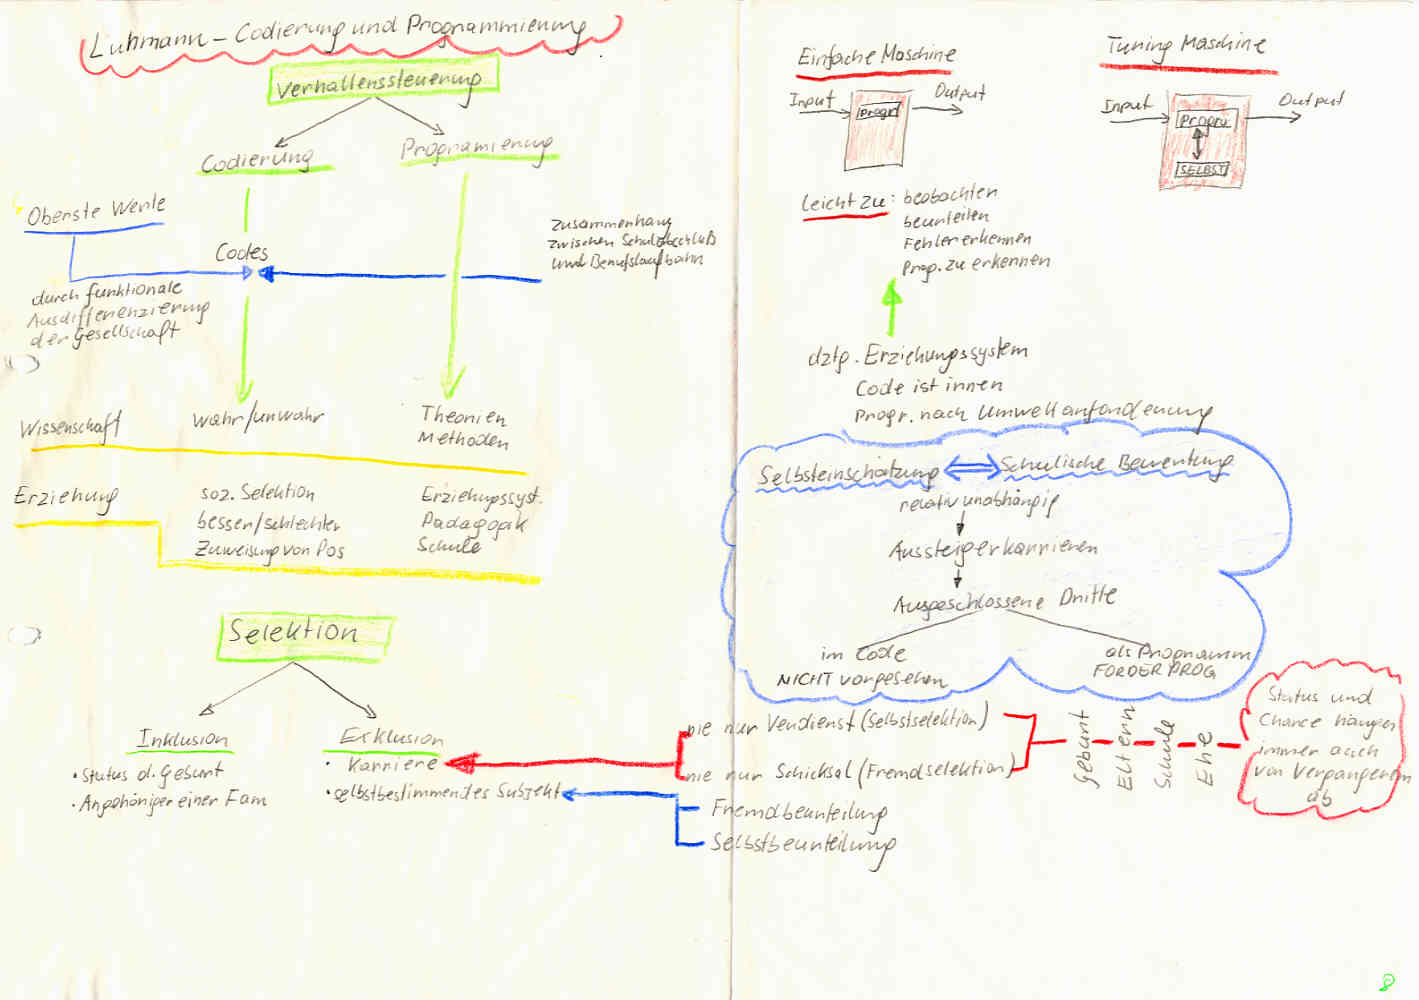 Luhmann – Codierung und Programmierung
Verhaltenssteuerung
Codierung
Programierung
Oberste Werte
Codes
durch funktionale
Ausdifferenzierung
der Gesellschaft
Zusammenhang
zwischen Schulabschluß
und Berufslaufbahn
Wissenschaft
wahr/unwahr
Theorien
Methoden
Erziehung
soz. Selektion
besser/schlechter
Zuweisung von Pos
Erziehungssyst.
Pädagogik
Schule
Selektion
Inklusion
• Status d. Geburt
• Angehöriger einer Fam
Exklusion
• Karriere
• selbstbestimmendes Subjekt
Einfache Maschine
Input
Progr
Output
Tuning Maschine
Input
Progru
SELBST
Output
Leicht zu: beobachten
beurteilen
Fehler erkennen
Prog. zu erkennen
dztp. Erziehungssystem
Code ist innen
Progr. nach Umweltanforderung
Selbsteinschätzung
Schulische Bewertung
relativ unabhängig
Aussteigerkarrieren
Ausgeschlossene Dritte
im Code
NICHT vorgesehen
als Programm
FÖRDERPROG
nie nur Verdienst (Selbstselektion)
nie nur Schicksal (Fremdselektion)
Fremdbeurteilung
Selbstbeurteilung
Geburt
Eltern
Schule
Ehe
Status und
Chance hängen
immer auch
von Vergangenem
ab
8